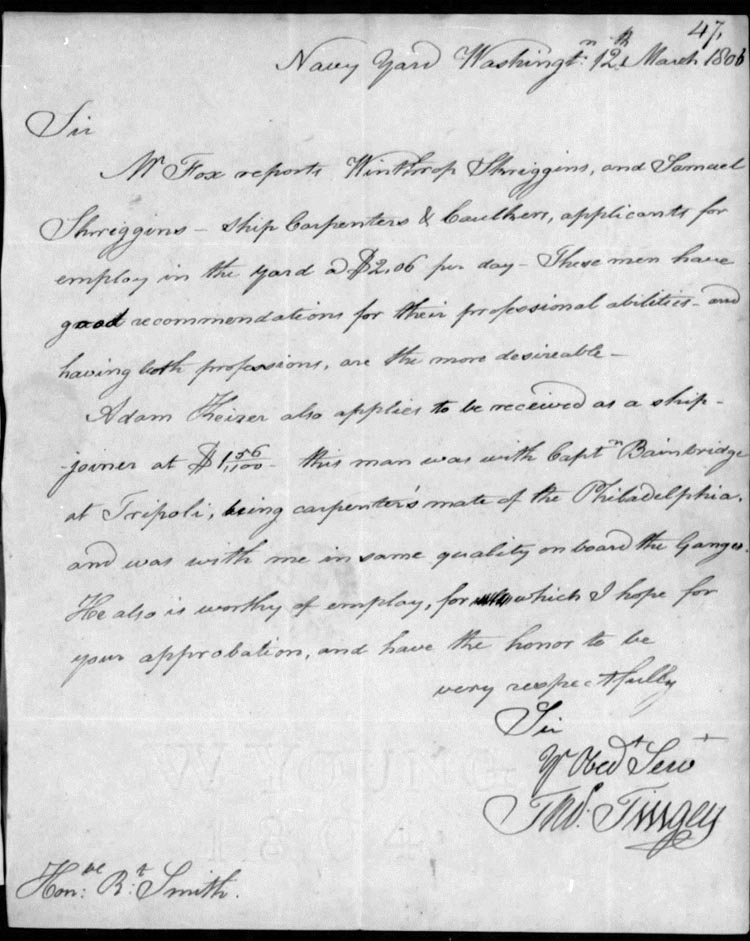 47.
Navy Yard Washingtn: 12th March 1806
Sir
Mr Fox reports Winthrop Shriggins, and Samuel
Shriggins - ship Carpenters & Caulkers, applicants for
employ in the Yard a $2,06 per day - These men have
good recommendations for their professional abilities - and
having both professions, are the more desireable -
Adam Keizer also applies to be received as a ship-
-joiner at $1,56/100 - this man was with Captn Bainbridge
at Tripoli, being carpenter's mate of the Philadelphia.
and was with me in same quality on board the Ganges.
He also is worthy of employ, for which I hope for
your approbation, and have the honor to be
very respectfully
Sir
Yr Obedt Servt
Thos. Tingey
WYOUNG
1804
Honble: Rt: Smith.